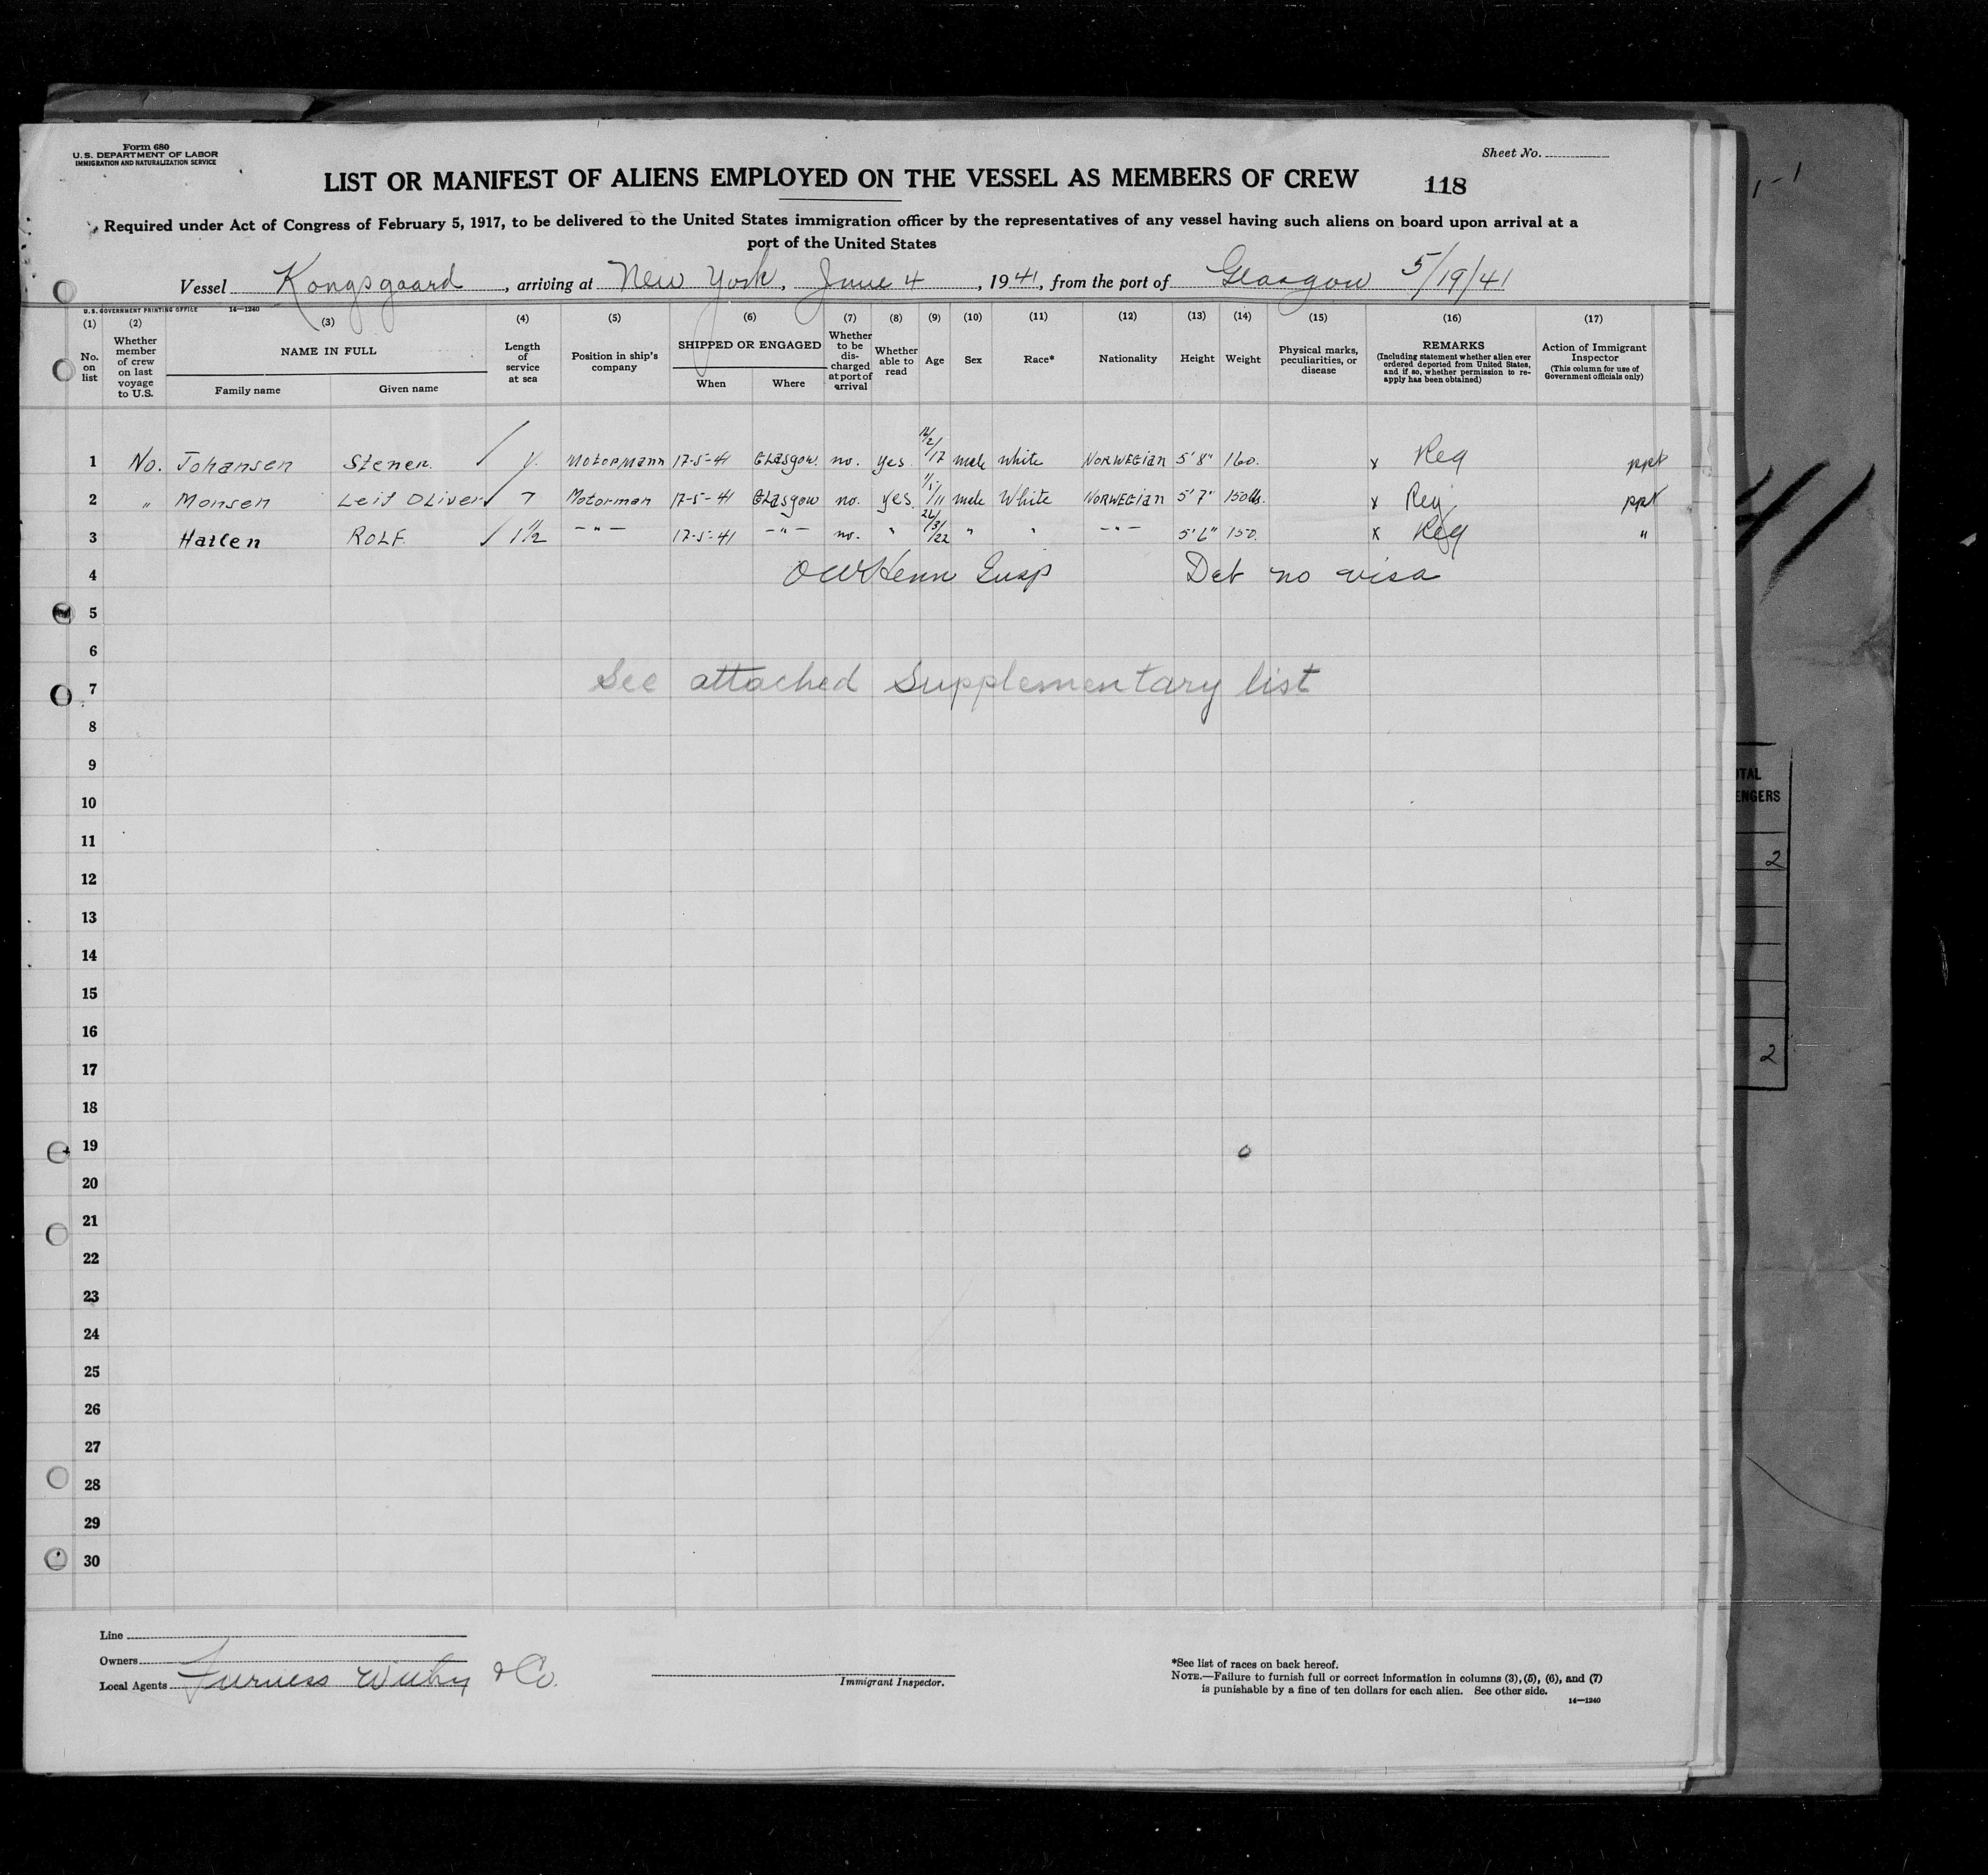 Form 680
U.S. DEPARTMENT OF LABOR
IMMIGRATION AND NATURALIZATION SERVICE
Sheet No.
LIST OR MANIFEST OF ALIENS EMPLOYED ON THE VESSEL AS MEMBERS OF CREW
118
Required under Act of Congress of February 5, 1917, to be delivered to the United States immigration officer by the representatives of any vessel having such aliens on board upon arrival at a
port of the United States
Vessel Kongsgaard, arriving at New York, June 4, 1941, from the port of Glasgow 5/19/41
U.S. GOVERNMENT PRINTING OFFICE 14—1240
(1) (2) (3) (4) (5) (6) (7) (8) (9) (10) (11) (12) (13) (14) (15) (16) (17)
No. on list
Whether member of crew on last voyage to U.S.
NAME IN FULL
Family name
Given name
Length of service at sea
Position in ship's company
SHIPPED OR ENGAGED
When
Where
Whether to be discharged at port of arrival
Whether able to read
Age
Sex
Race*
Nationality
Height
Weight
Physical marks, peculiarities, or disease
REMARKS
(Including statement whether alien ever ordered deported from United States, and if so, whether permission to reapply has been obtained)
Action of Immigrant Inspector
(This column for use of Government officials only)
1 No. Johansen Stener. Motormann 17-5-41 Glasgow. no. yes /17 male white Norwegian 5'8" 160. x Reg ppt
2 " Monsen Leif Oliver 7 Motorman 17-5-41 Glasgow no. yes. 1/1/11 male White Norwegian 5'7" 150 lbs. x Reg ppt
3 Hallen Rolf 1½ —"— 17-5-41 —"— no. " 26/3/22 " " —"— 5'6" 150. x Reg "
4 Insp Det no visa
5
6
7 See attached Supplementary list
8
9
10
11
12
13
14
15
16
17
18
19
20
21
22
23
24
25
26
27
28
29
30
Line
Owners
Local Agents Furness Withy & Co.
Immigrant Inspector.
*See list of races on back hereof.
NOTE.—Failure to furnish full or correct information in columns (3), (5), (6), and (7)
is punishable by a fine of ten dollars for each alien. See other side.
14—1240
OTAL
ENGERS
2
2
41